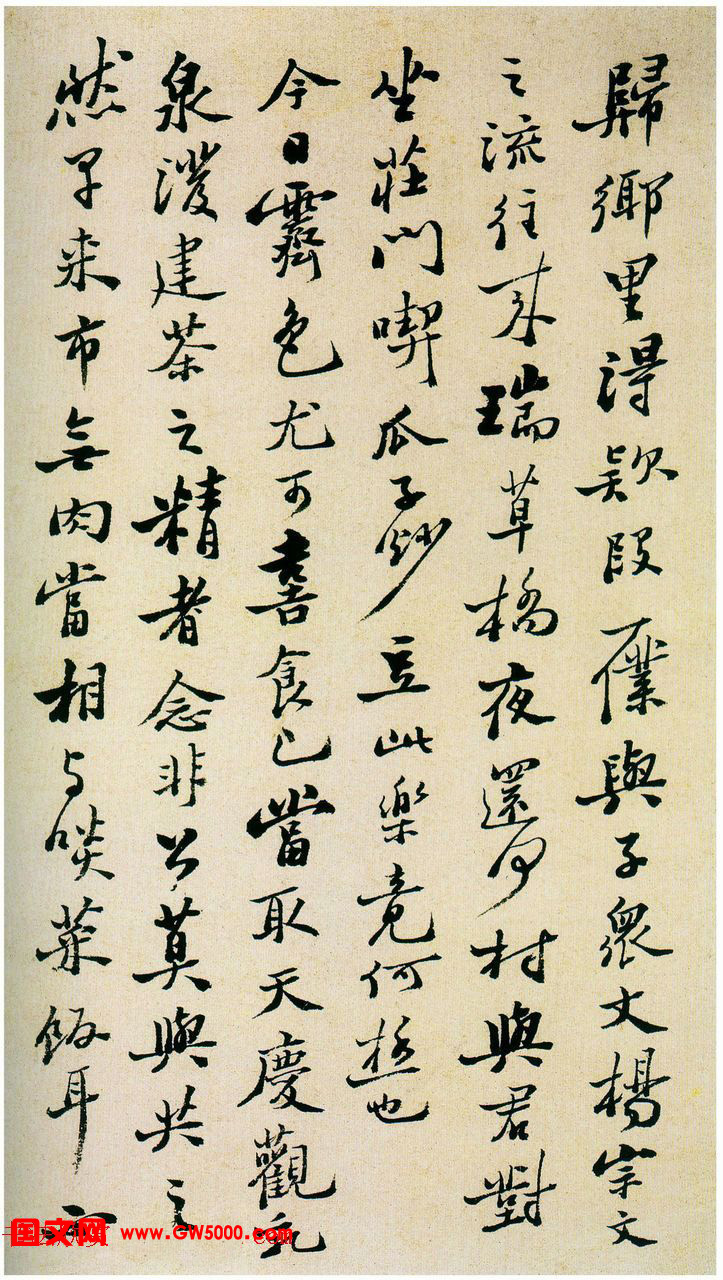 歸鄉里得款段一僕與子眾丈楊宗文
之流往來瑞草橋夜還何村與君對
坐莊門喫瓜子炒豆此樂竟何極也
今日霽色尤可喜食已當取天慶觀乳
泉潑建茶之精者念非公莫與共之
然早來市無肉當相与啖菜飯耳
国文网 www.GW5000.com